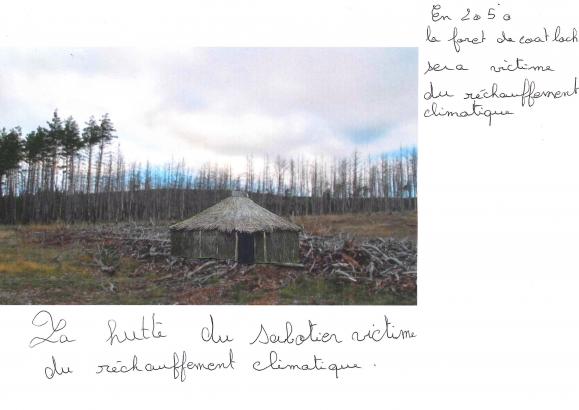 En 2050
la foret de coat loch
sera victime
du réchauffement
climatique
La hutte du sabotier victime
du réchauffement climatique.